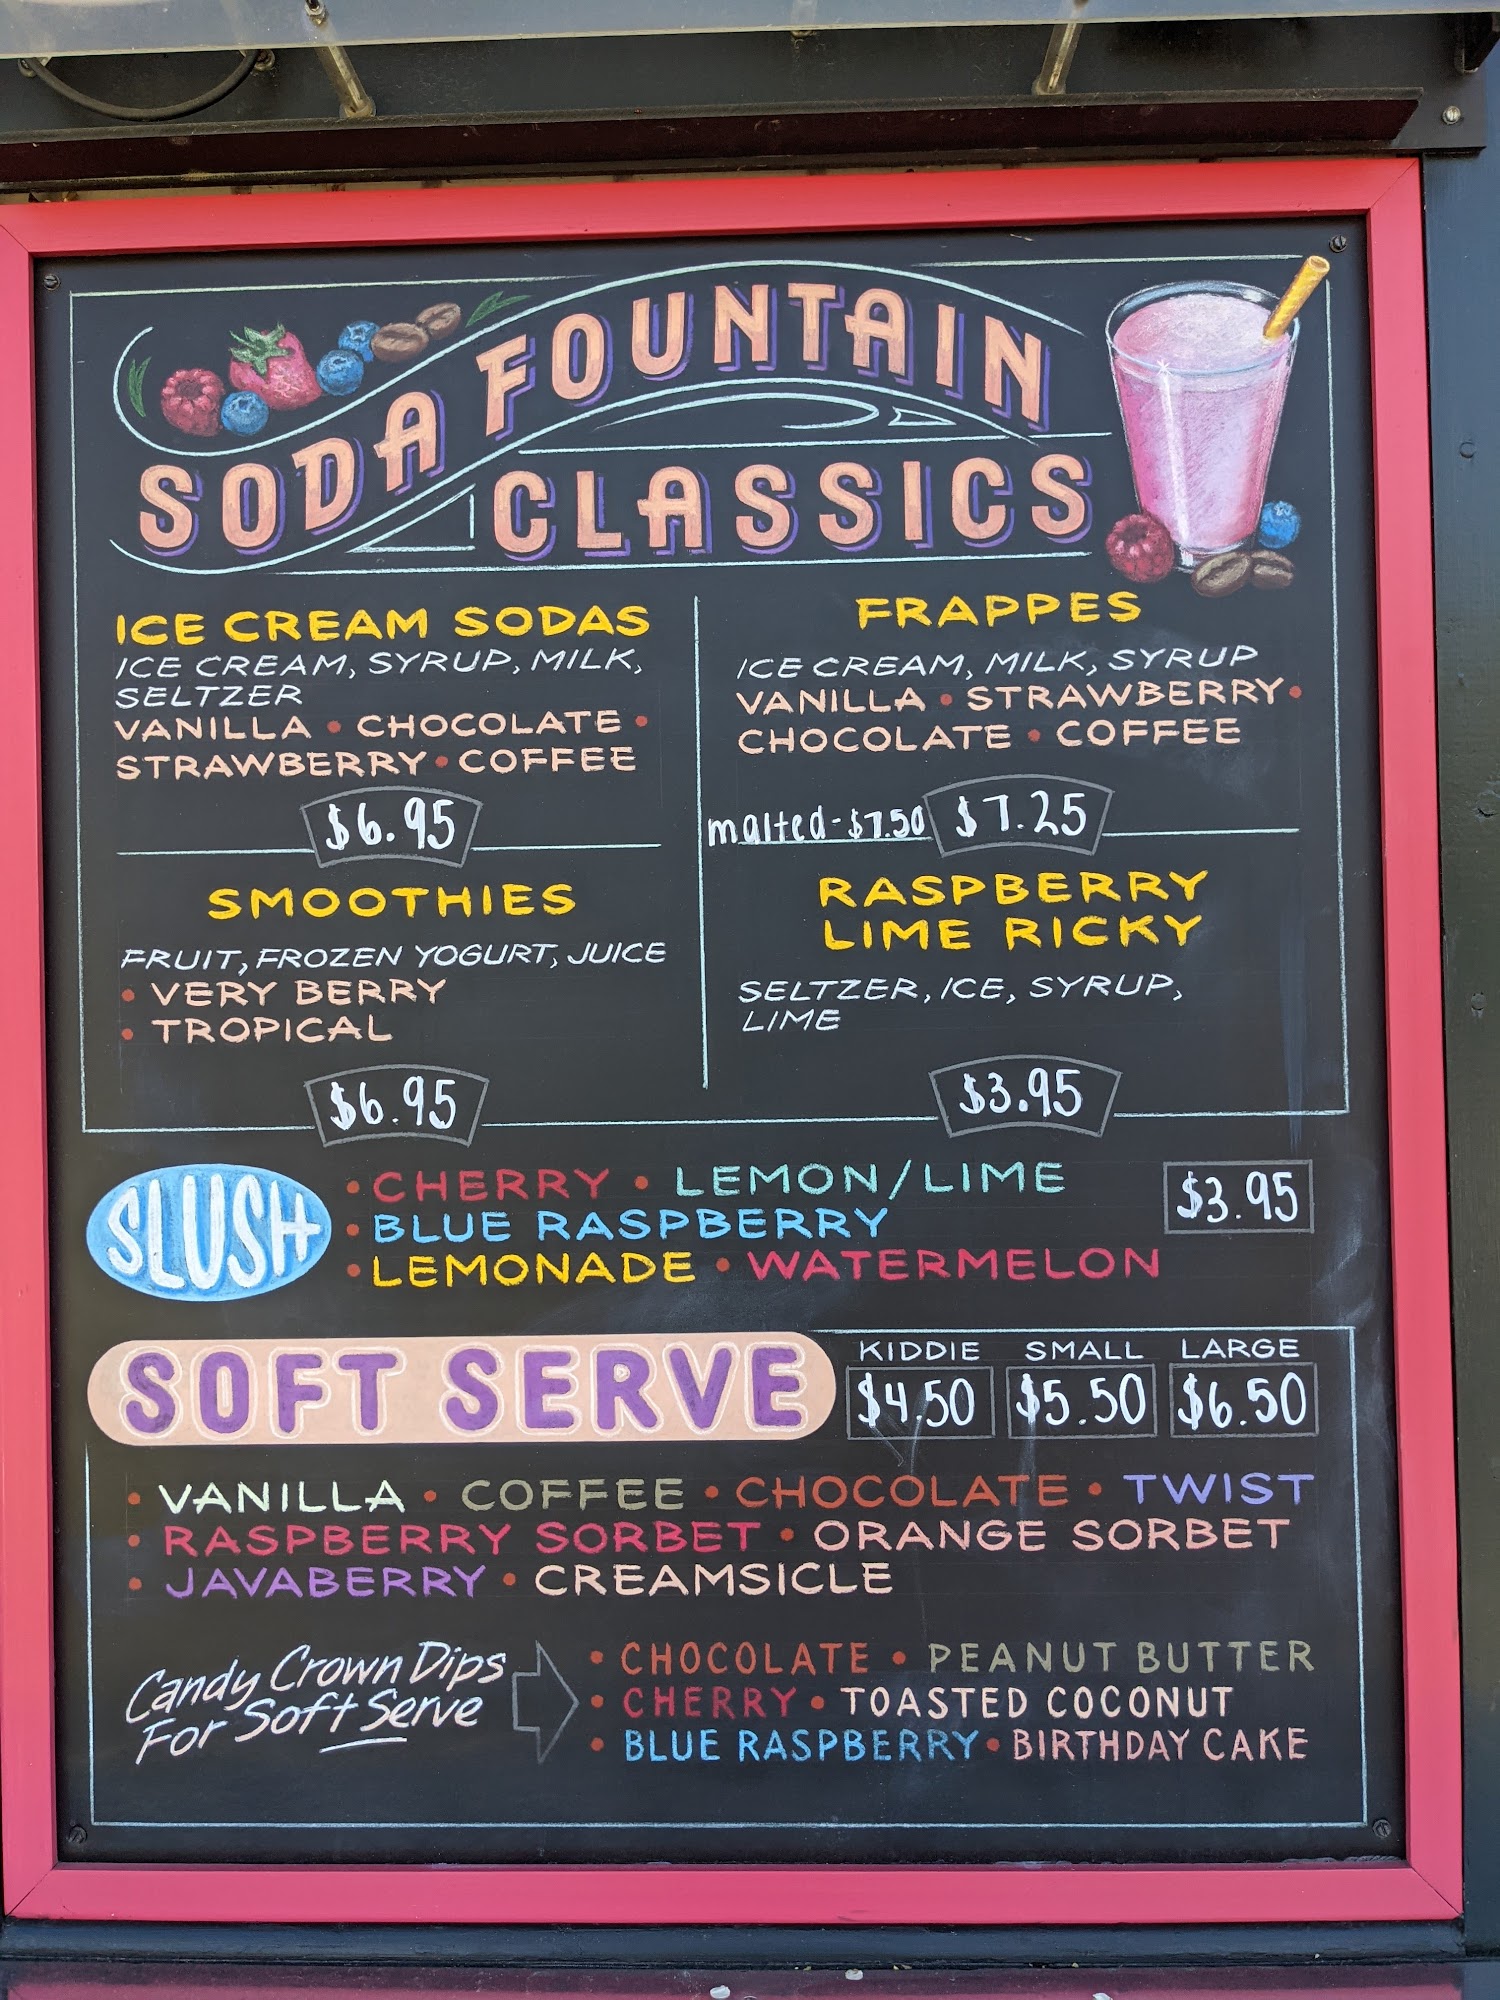 SODA FOUNTAIN
CLASSICS
ICE CREAM SODAS
ICE CREAM, SYRUP, MILK,
SELTZER
VANILLA • CHOCOLATE •
STRAWBERRY • COFFEE
$6.95
FRAPPES
ICE CREAM, MILK, SYRUP
VANILLA • STRAWBERRY •
CHOCOLATE • COFFEE
malted-$7.50 $7.25
SMOOTHIES
FRUIT, FROZEN YOGURT, JUICE
• VERY BERRY
• TROPICAL
$6.95
RASPBERRY
LIME RICKY
SELTZER, ICE, SYRUP,
LIME
$3.95
SLUSH
• CHERRY • LEMON/LIME
• BLUE RASPBERRY
• LEMONADE • WATERMELON
$3.95
SOFT SERVE
KIDDIE SMALL LARGE
$4.50 $5.50 $6.50
• VANILLA • COFFEE • CHOCOLATE • TWIST
• RASPBERRY SORBET • ORANGE SORBET
• JAVABERRY • CREAMSICLE
Candy Crown Dips
For Soft Serve
• CHOCOLATE • PEANUT BUTTER
• CHERRY • TOASTED COCONUT
• BLUE RASPBERRY • BIRTHDAY CAKE